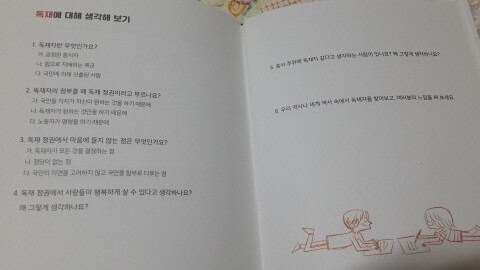 독재에 대해 생각해 보기
1. 독재자란 무엇인가요?
가. 공정한 통치자
나. 힘으로 지배하는 폭군
다. 국민에 의해 선출된 사람
2. 독재자의 정부를 왜 독재 정권이라고 부르나요?
가. 국민들 각자가 자신이 원하는 것을 하기 때문에
나. 독재자가 원하는 것만을 하기 때문에
다. 노동자가 명령을 하기 때문에
3. 독재 정권에서 마음에 들지 않는 점은 무엇인가요?
가. 독재자가 모든 것을 결정하는 점
나. 정당이 없는 점
다. 국민의 의견을 고려하지 않고 국민을 함부로 다루는 점
4. 독재 정권에서 사람들이 행복하게 살 수 있다고 생각하나요?
왜 그렇게 생각하나요?
5. 혹시 주위에 독재자 같다고 생각하는 사람이 있나요? 왜 그렇게 생각하나요?
6. 우리 역사나 세계 역사 속에서 독재자를 찾아보고, 여러분의 느낌을 써 보세요.